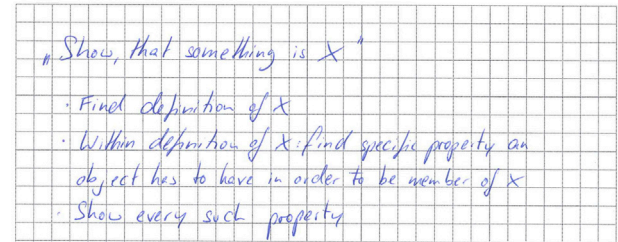 „Show, that something is X"
· Find definition of X
· Within definition of X: find specific property an
object has to have in order to be member of X
· Show every such property